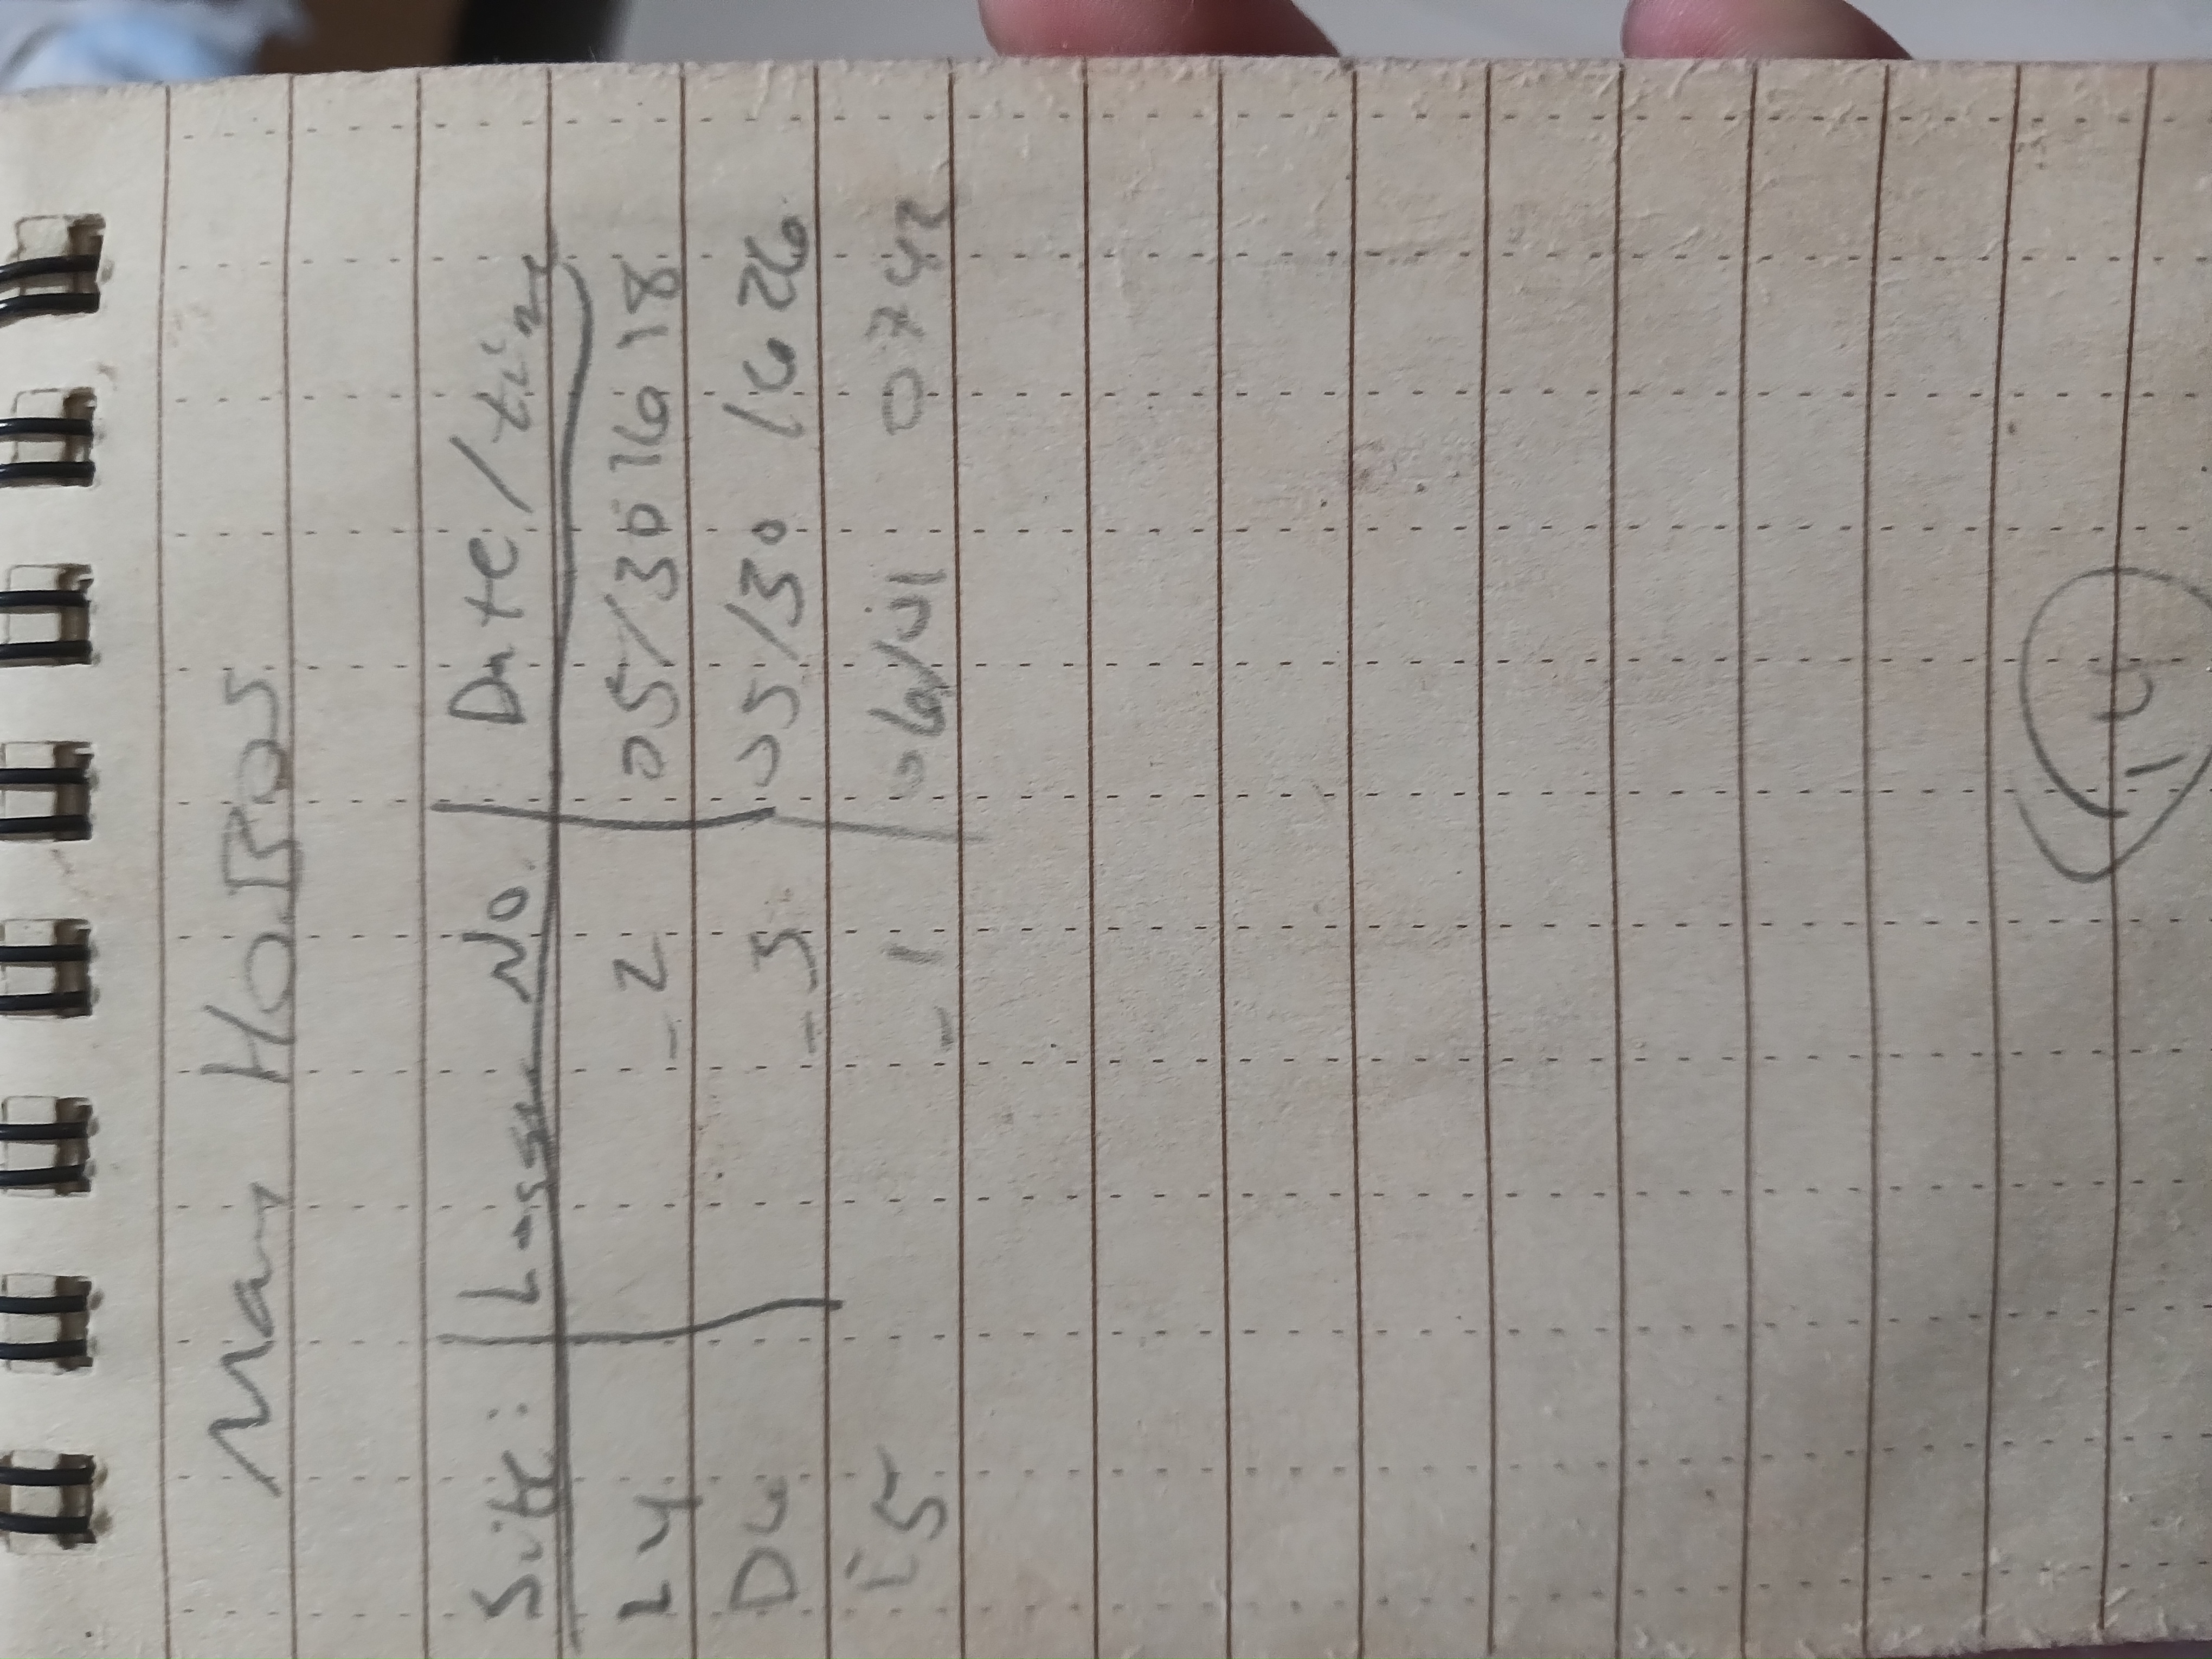 May HOBOS
Site: Logger No. Date/time
L4 _2 05/30 1618
D4 _3 05/30 1626
_1 06/01 0742
14